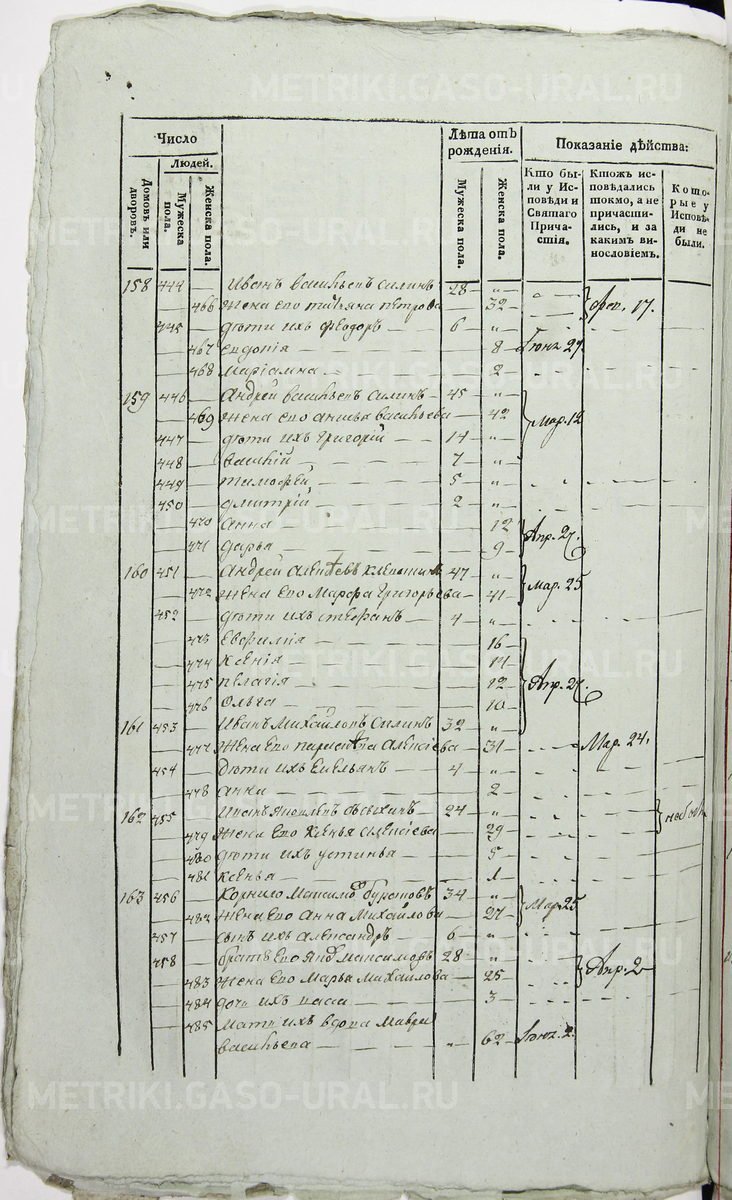 METRIKI.GASO-URAL.RU
Число
Лѣта отъ рожденія.
Показаніе дѣйства:
Людей.
Домовъ или дворовъ.
Мужеска пола.
Женска пола.
Мужеска пола.
Женска пола.
Кто были у Исповѣди и Святаго Причастія.
Ктожъ исповѣдались токмо, а не причастились, и за какимъ винословіемъ.
Которые у Исповѣди не были.
158 444 — Иванъ Васильевъ Силинъ 28 — „
— 466 жена его Татьяна Петрова 32 — 17.
445 — дѣти ихъ Феодоръ — 6 — „
— 467 Евдокія — — 8
— 468 Маріамна — — 2
159 446 — Андрей Васильевъ Силинъ — 45 — „
— 469 жена его Васильева — 42 — Мар. 12
447 — дѣти ихъ Григорій — 14 — „
448 — Василій — 7 — „
449 — Тимофей — 5 — „
450 — Дмитрій — 2 — „
— 470 Анна — 12
— 471 Дарья — 9 — Апр. 27.
160 451 — Андрей 47 — „
— 472 жена его Марфа Григорьева — 41 — Мар. 25
452 — дѣти ихъ Стефанъ — 4 — „
— 473 Евфимія — 16
— 474 Ксенія — 14
— 475 Пелагія — 12 — Апр. 27.
— 476 Ольга — 10
161 453 — Иванъ Михайловъ Силинъ 32 — „
— 477 жена его Алексіева — 31 — Мар. 24.
454 — дѣти ихъ Емельянъ — 4 — „
— 478 Анна — 2
162 455 — 24 — „
— 479 жена его Ксенья Алексіева — 29
— 480 дѣти ихъ Устинья — 5
— 481 Ксенья — 1
163 456 — Корнило Максимовъ 34 — „
— 482 жена его Анна Михайлова — 27 — Мар. 25
457 — сынъ ихъ Александръ — 6 — „
458 — братъ его Максимовъ 28 — „
— 483 жена его Марья Михайлова — 25 — Апр. 2
— 484 дочь ихъ — 3
— 485 мать ихъ вдова Мавра
Васильева — „ 62